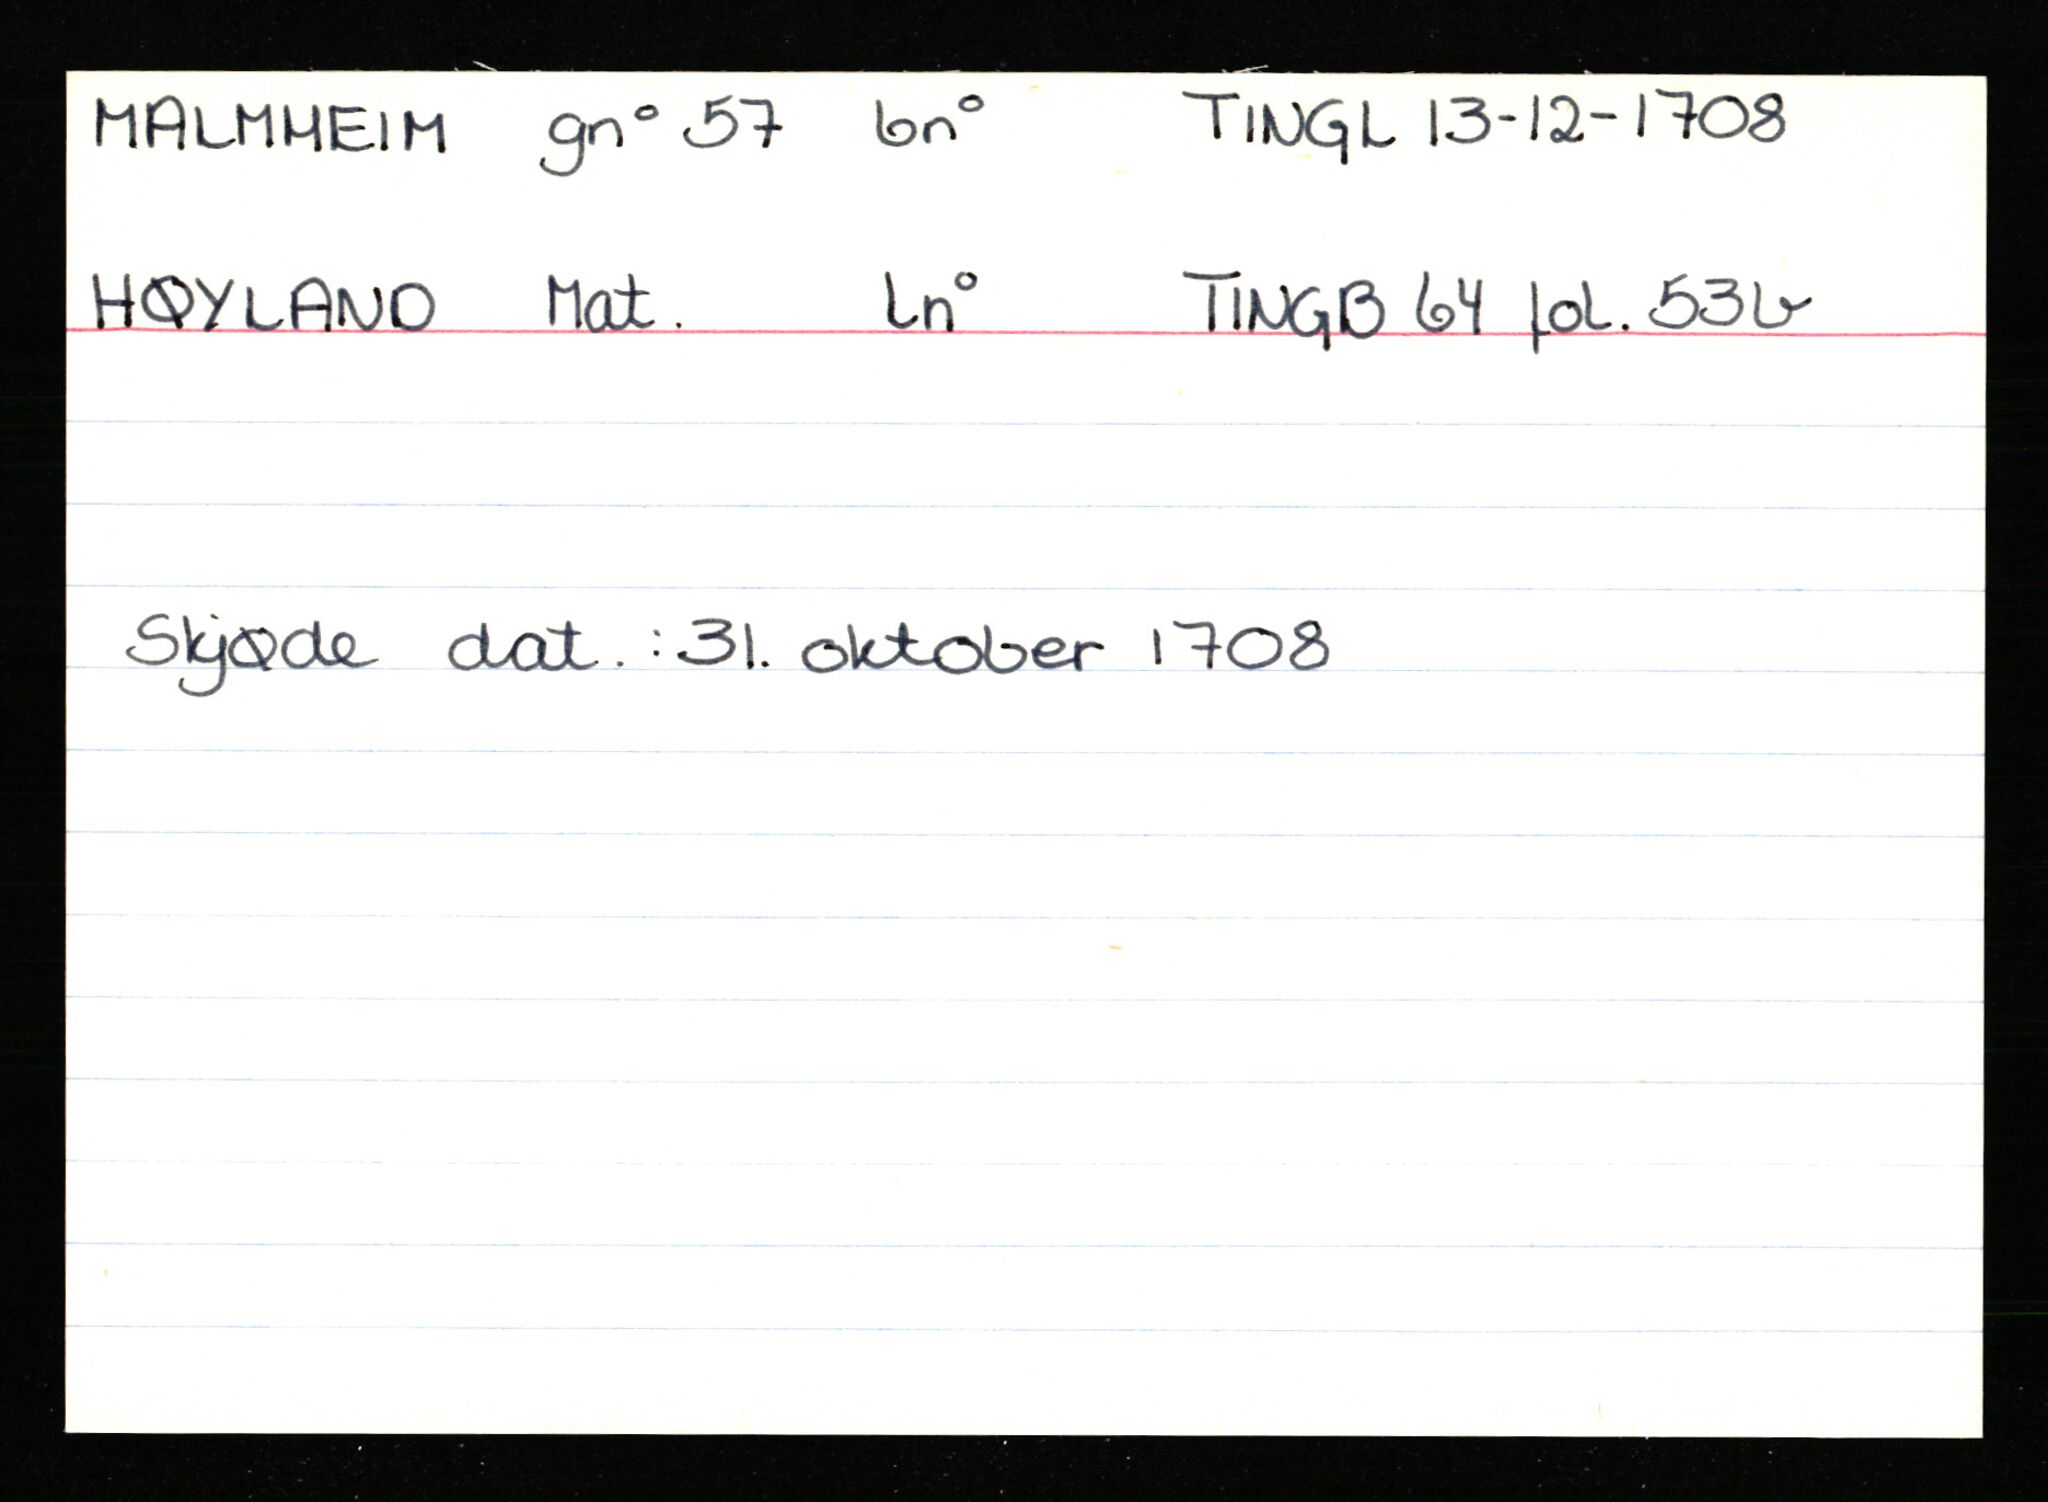 MALMHEIM gn° 57 bn° TINGL 13-12-1708
HØYLAND Mat. Ln° TINGB 64 fol. 53b
Skjøde dat.: 31. oktober 1708